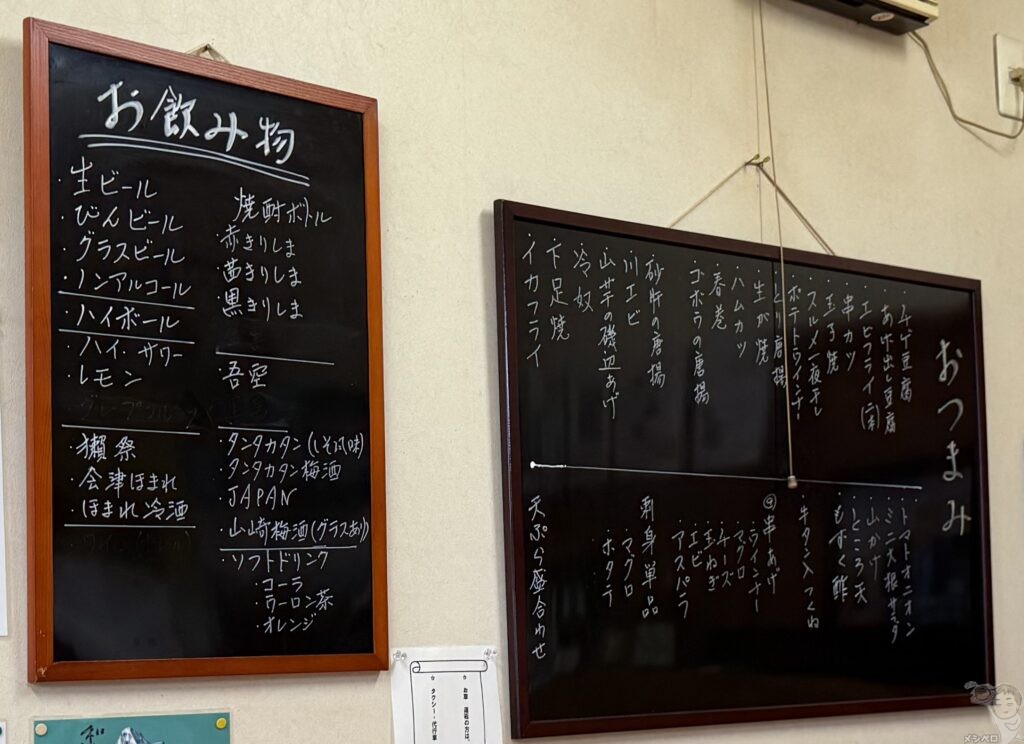 お飲み物
・生ビール
・びんビール
・グラスビール
・ノンアルコール
・ハイボール
・ハイ・サワー
・レモン
・獺祭
・会津ほまれ
・ほまれ冷酒
焼酎ボトル
・赤きりしま
・茜きりしま
・黒きりしま
・吾空
・タンタカタン(しそ風味)
・タンタカタン梅酒
・JAPAN
・山崎梅酒(グラスあり)
・ソフトドリンク
・コーラ
・ウーロン茶
・オレンジ
おつまみ
・あげ出し豆腐
・エビフライ
・串カツ
・玉子焼
・スルメ一夜干し
・ポテトウインナー
・とり唐揚
・生が焼
・ハムカツ
・春巻
・ゴボウの唐揚
・砂肝の唐揚
・川エビ
・山芋の磯辺あげ
・冷奴
・下足焼
・イカフライ
・トマトオニオン
・ミニ大根サラダ
・山かけ
・ところ天
・もずく酢
・牛タン入つくね
・串あげ
・ウインナー
・マグロ
・チーズ
・玉ねぎ
・エビ
・アスパラ
刺身単品
・マグロ
・ホタテ
天ぷら盛合わせ
☆お車運転の方は、
☆タクシー・代行車
メシペロ